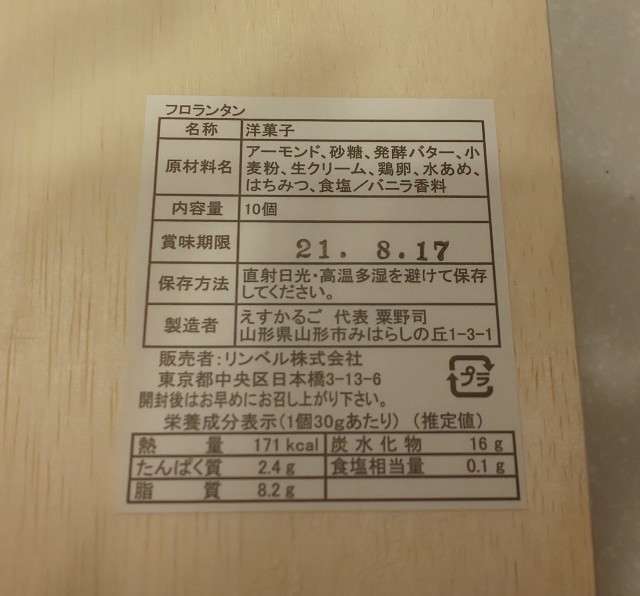 フロランタン
名称 洋菓子
原材料名 アーモンド、砂糖、発酵バター、小
麦粉、生クリーム、鶏卵、水あめ、
はちみつ、食塩／バニラ香料
内容量 10個
賞味期限 21. 8.17
保存方法 直射日光・高温多湿を避けて保存
してください。
製造者 えすかるご 代表 粟野司
山形県山形市みはらしの丘1-3-1
販売者:リンベル株式会社
東京都中央区日本橋3-13-6
開封後はお早めにお召し上がり下さい。
プラ
栄養成分表示(1個30gあたり) (推定値)
熱量 171 kcal 炭水化物 16 g
たんぱく質 2.4 g 食塩相当量 0.1 g
脂質 8.2 g